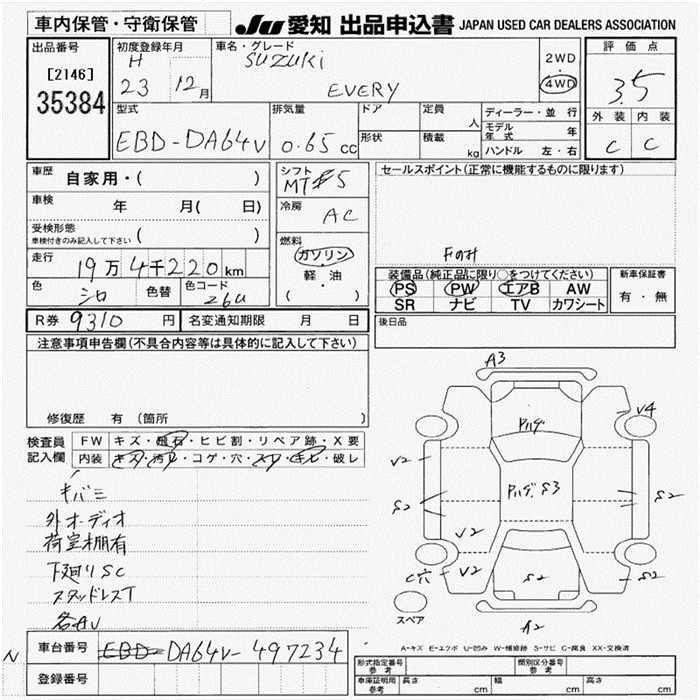 車内保管・守衛保管
JU 愛知 出品申込書 JAPAN USED CAR DEALERS ASSOCIATION
出品番号
[2146]
35384
初度登録年月
H
23 12月
車名・グレード
SUZUKI
EVERY
2WD
・
4WD
評価点
3.5
外装 内装
C C
型式
EBD-DA64V
排気量
0.65 cc
ドア
形状
定員
人
積載
kg
ディーラー・並行
モデル年式 年
ハンドル 左・右
車歴 自家用・( )
車検 年 月( 日)
受検形態
車検付きのみ記入して下さい ( )
走行 19万4千220km
色 シロ 色替 色コード 26U
シフト
MT 5
冷房
AC
燃料
ガソリン
軽・油
( ・ )
セールスポイント(正常に機能するものに限ります)
Fのみ
装備品(純正品に限り○をつけてください)
PS PW エアB AW
SR ナビ TV カワシート
新車保証書
有・無
R券 9310 円 名変通知期限 月 日
後日品
注意事項申告欄(不具合内容等は具体的に記入して下さい)
修復歴 有(箇所 )
検査員
記入欄
FW キズ・飛石・ヒビ割・リペア跡・X要
内装 キズ・汚れ・コゲ・穴・スレ・キレ・破レ
キバミ
外オーディオ
荷室棚有
下廻りSC
スタッドレスT
各AU
A3
V4
V2
S2
V2
C穴
V2
Pハゲ
Pハゲ.S3
S2
S2
S2
A2
スペア
A-キズ E-エクボ U-凹み W-補修跡 S-サビ C-腐食 XX-交換済
N
車台番号 EBD- DA64V-497234
登録番号
形式指定番号
参考
類別区分番号
参考
車庫証明用
参考
長さ cm 幅 cm 高さ cm